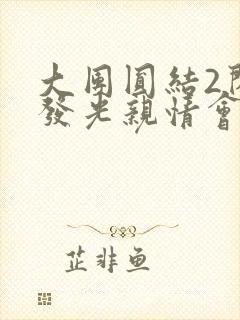 大團圓結2
發光親情會
芷非鱼